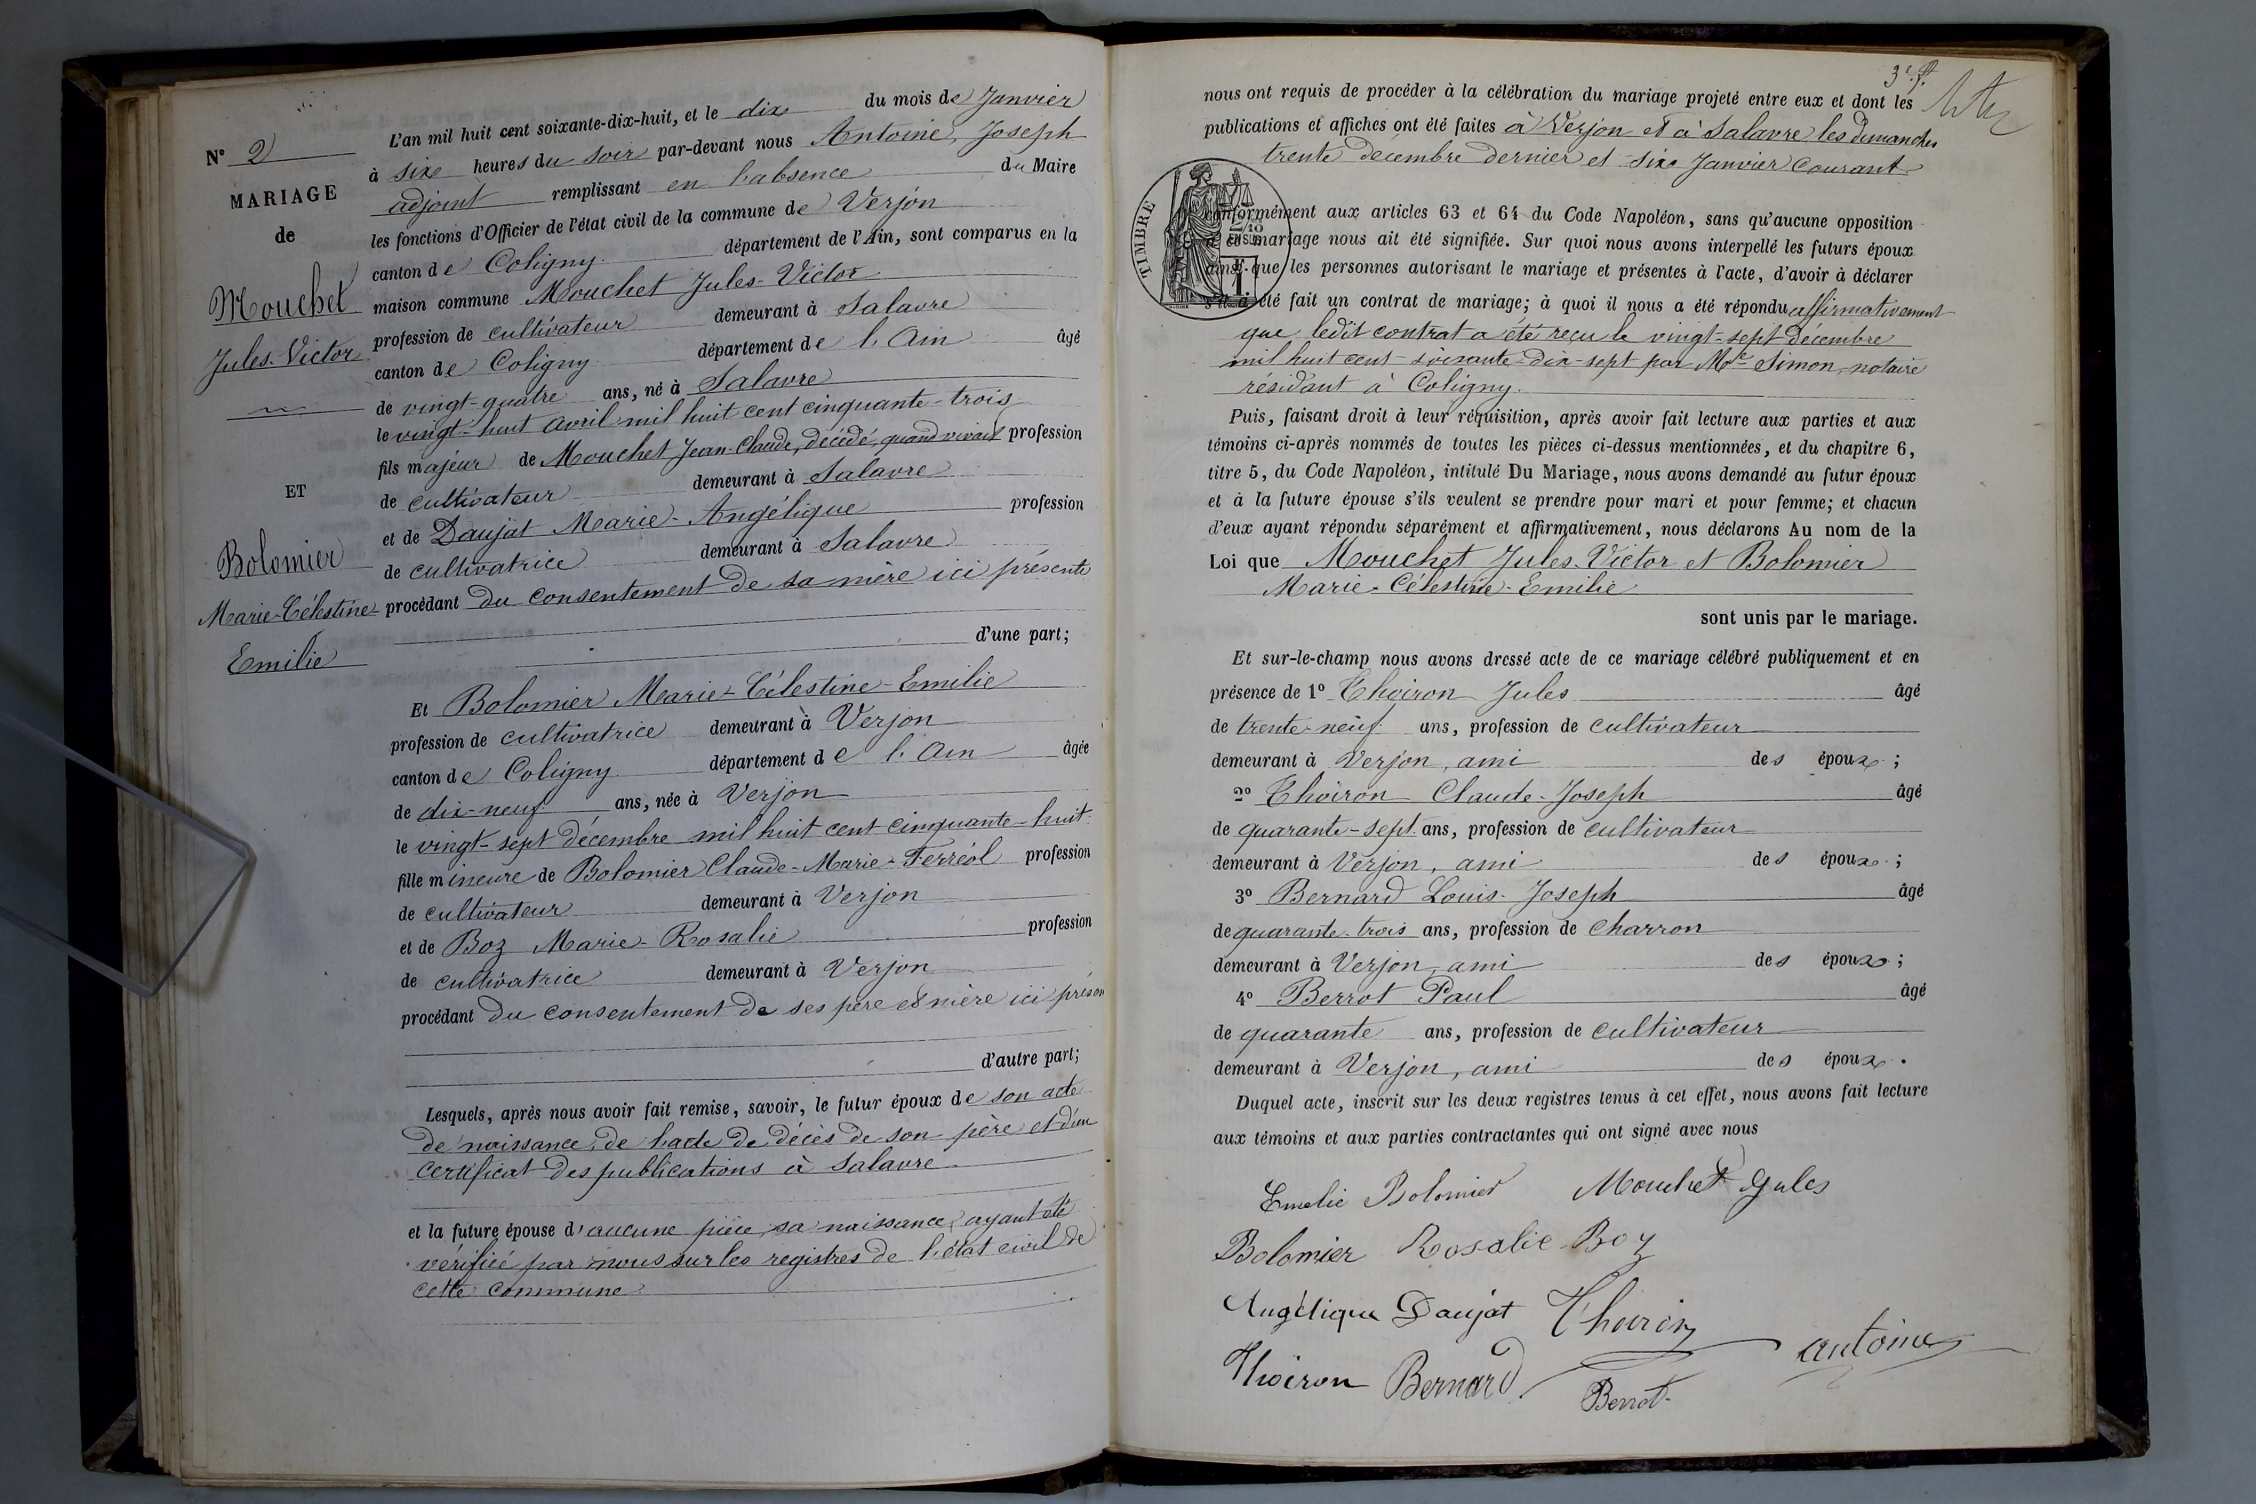 N° 2
MARIAGE
de
Mouchet
Jules-Victor
ET
Bolomier
Marie-Célestine
Emilie
L'an mil huit cent soixante-dix-huit, et le dix du mois de Janvier
à six heures du soir par-devant nous Antoine, Joseph
adjoint remplissant en l'absence du Maire
les fonctions d'Officier de l'état civil de la commune de Verjon
canton de Coligny département de l'Ain, sont comparus en la
maison commune Mouchet Jules-Victor
profession de cultivateur demeurant à Salavre
canton de Coligny département de l'Ain âgé
de vingt-quatre ans, né à Salavre
le vingt-huit avril mil huit cent cinquante-trois
fils majeur de Mouchet Jean-Claude, décédé, quand vivait profession
de cultivateur demeurant à Salavre
et de Daujat Marie-Angélique profession
de cultivatrice demeurant à Salavre
procédant du consentement de sa mère ici présente
d'une part;
Et Bolomier Marie-Célestine-Emilie
profession de cultivatrice demeurant à Verjon
canton de Coligny département de l'Ain âgée
de dix-neuf ans, née à Verjon
le vingt-sept décembre mil huit cent cinquante-huit
fille mineure de Bolomier Claude-Marie-Ferréol profession
de cultivateur demeurant à Verjon
et de Boz Marie-Rosalie profession
de cultivatrice demeurant à Verjon
procédant du consentement de ses père et mère ici présen
d'autre part;
Lesquels, après nous avoir fait remise, savoir, le futur époux de son acte
de naissance, de l'acte de décès de son père et d'un
certificat des publications à Salavre
et la future épouse d'aucune pièce, sa naissance, ayant été
vérifiée par nous sur les registres de l'état civil de
cette commune
3e f.
nous ont requis de procéder à la célébration du mariage projeté entre eux et dont les
publications et affiches ont été faites à Verjon et à Salavre les dimanches
trente décembre dernier et six Janvier courant
TIMBRE
conformément aux articles 63 et 64 du Code Napoléon, sans qu'aucune opposition
à ce mariage nous ait été signifiée. Sur quoi nous avons interpellé les futurs époux
ainsi que les personnes autorisant le mariage et présentes à l'acte, d'avoir à déclarer
s'il a été fait un contrat de mariage; à quoi il nous a été répondu affirmativement
que ledit contrat a été reçu le vingt-sept décembre
mil huit cent soixante-dix-sept par Me Simon, notaire
résidant à Coligny.
Puis, faisant droit à leur réquisition, après avoir fait lecture aux parties et aux
témoins ci-après nommés de toutes les pièces ci-dessus mentionnées, et du chapitre 6,
titre 5, du Code Napoléon, intitulé Du Mariage, nous avons demandé au futur époux
et à la future épouse s'ils veulent se prendre pour mari et pour femme; et chacun
d'eux ayant répondu séparément et affirmativement, nous déclarons Au nom de la
Loi que Mouchet Jules-Victor et Bolomier
Marie-Célestine-Emilie
sont unis par le mariage.
Et sur-le-champ nous avons dressé acte de ce mariage célébré publiquement et en
présence de 1° Thoiron Jules âgé
de trente-neuf ans, profession de cultivateur
demeurant à Verjon, ami des époux;
2° Thoiron Claude-Joseph âgé
de quarante-sept ans, profession de cultivateur
demeurant à Verjon, ami des époux;
3° Bernard Louis-Joseph âgé
de quarante-trois ans, profession de charron
demeurant à Verjon, ami des époux;
4° Berrot Paul âgé
de quarante ans, profession de cultivateur
demeurant à Verjon, ami des époux.
Duquel acte, inscrit sur les deux registres tenus à cet effet, nous avons fait lecture
aux témoins et aux parties contractantes qui ont signé avec nous
Emelie Bolomier Mouchet Jules
Bolomier Rosalie Boz
Angélique Daujat Thoiron
Thoiron Bernard Berrot antoine